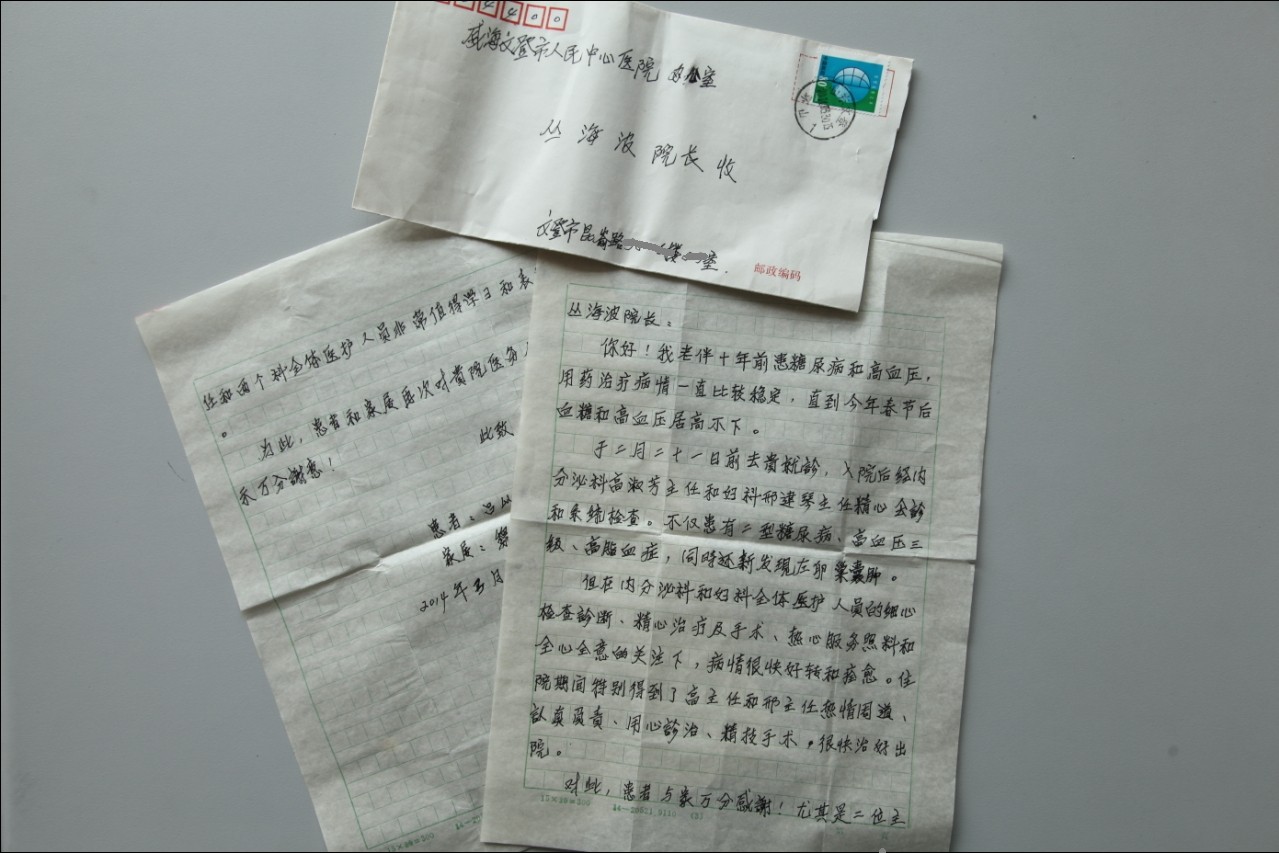 4400
威海文登市人民中心医院 办公室
丛海波院长收
文登市昆嵛路
室
邮政编码
丛海波院长:
你好!我老伴十年前患糖尿病和高血压,
用药治疗病情一直比较稳定,直到今年春节后
血糖和高血压居高不下。
于二月二十一日前去贵就診,入院后经内
分泌科高淑芳主任和妇科邢建琴主任精心会診
和系统检查。不仅患有二型糖尿病、高血压三
级、高脂血症,同時还新发現左卵巢囊肿。
但在内分泌科和妇科全体医护人员的细心
检查診断、精心治疗及手术、热心服务照料和
全心全意的关注下,病情很快好转和痊愈。住
院期间特别得到了高主任和邢主任热情周道、
認真负责、用心診治、精技手术,很快治好出
院。
对此,患者与家万分感謝!尤其是二位主
15×20=300
任和两个科全体医护人员非常值得学习和表
。
为此,患者和家属再次对贵院医务
示万分謝意!
此致
患者:
家属:
2014年3月
15×20=300